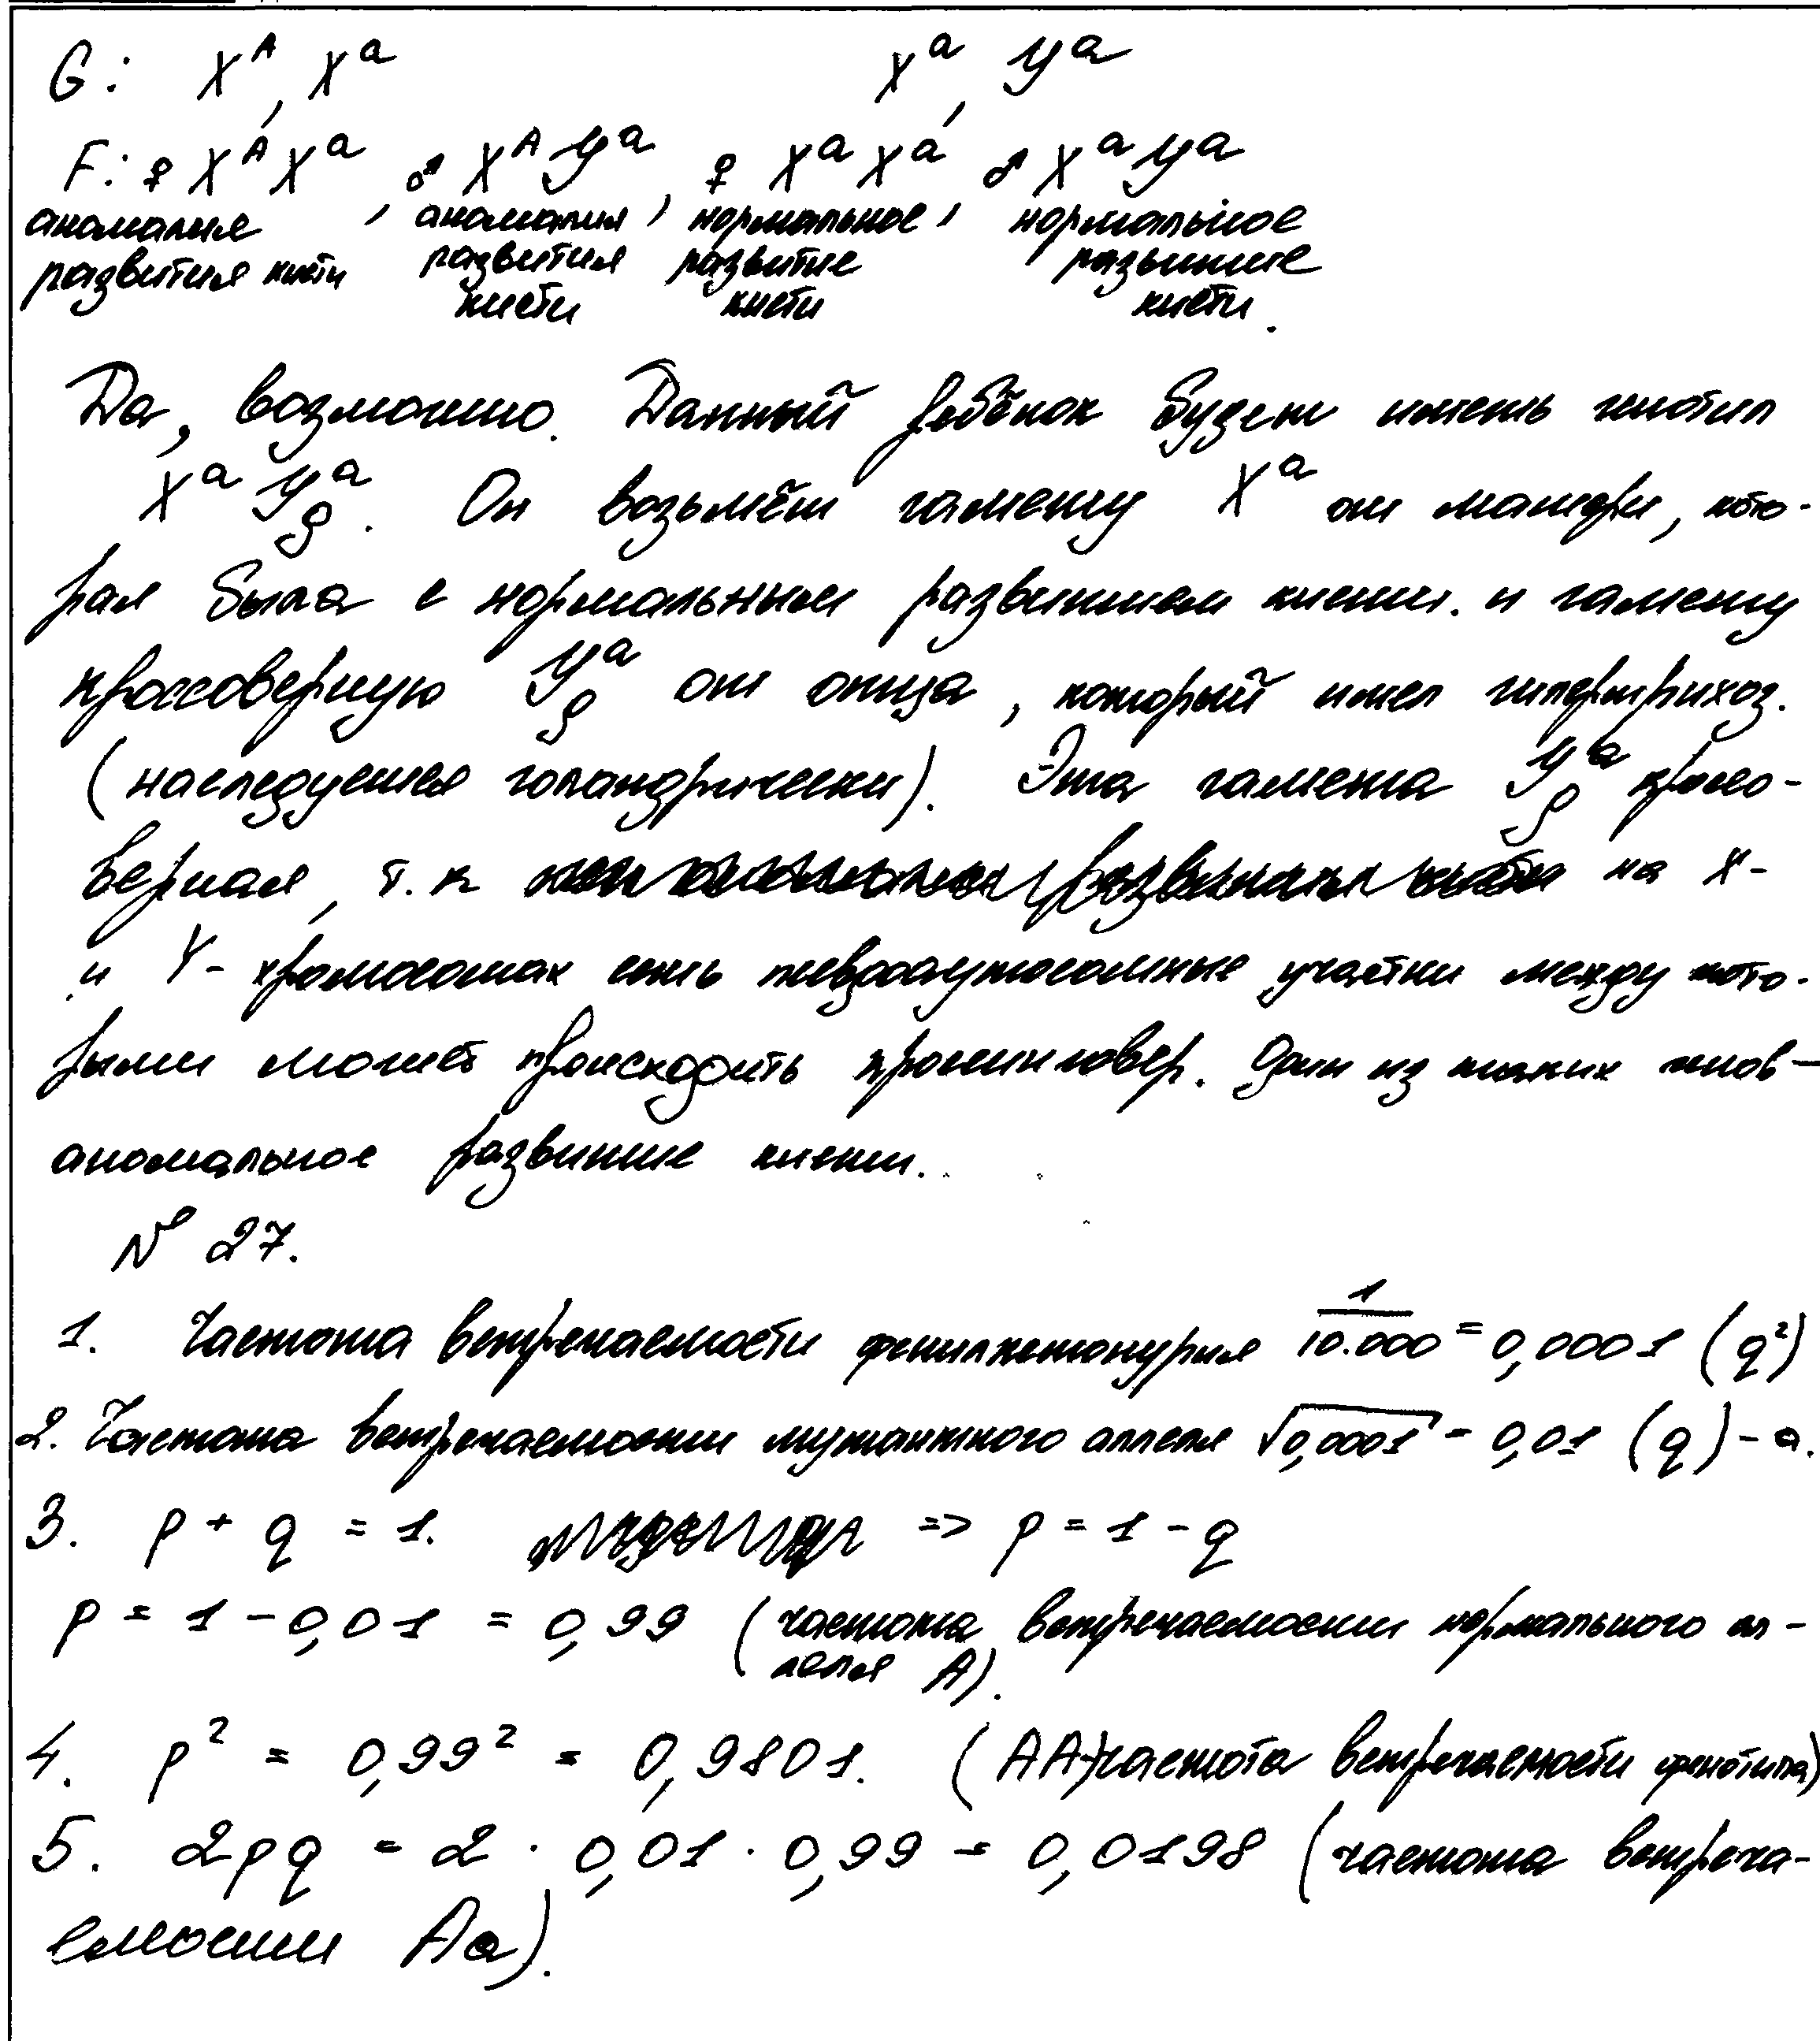 G: X^A, X^a X^a, У^a
F: ♀ X^A X^a, ♂ X^A У^a, ♀ X^a X^a, ♂ X^a У^a
аномалия , аномалия , нормальное , нормальное
развития кисти развития развитие развитие
кисти кисти кисти.
Да, возможно. Данный ребёнок будет иметь генотип
X^a У^a_g. Он возьмёт гамету X^a от матери, кото-
рая была с нормальным развитием кисти. и гамету
кроссоверную У^a_g от отца, который имел гипертрихоз.
(наследуется голандрически). Эта гамета У^a_g кроссо-
верная, т.к на X-
и Y-хромосомах есть псевдоаутосомные участки между кото-
рыми может происходить кроссинговер. Один из таких генов -
аномальное развитие кисти.
№ 27.
1. Частота встречаемости фенилкетонурия 1/10.000 = 0,0001 (q²)
2. Частота встречаемости мутантного аллеля √0,0001 = 0,01 (q) - a.
3. p + q = 1. => p = 1 - q
p = 1 - 0,01 = 0,99 (частота встречаемости нормального ал-
леля A).
4. p² = 0,99² = 0,9801. (AA) частота встречаемости фенотипа)
5. 2pq = 2 · 0,01 · 0,99 = 0,0198 (частота встреча-
емости Aa).